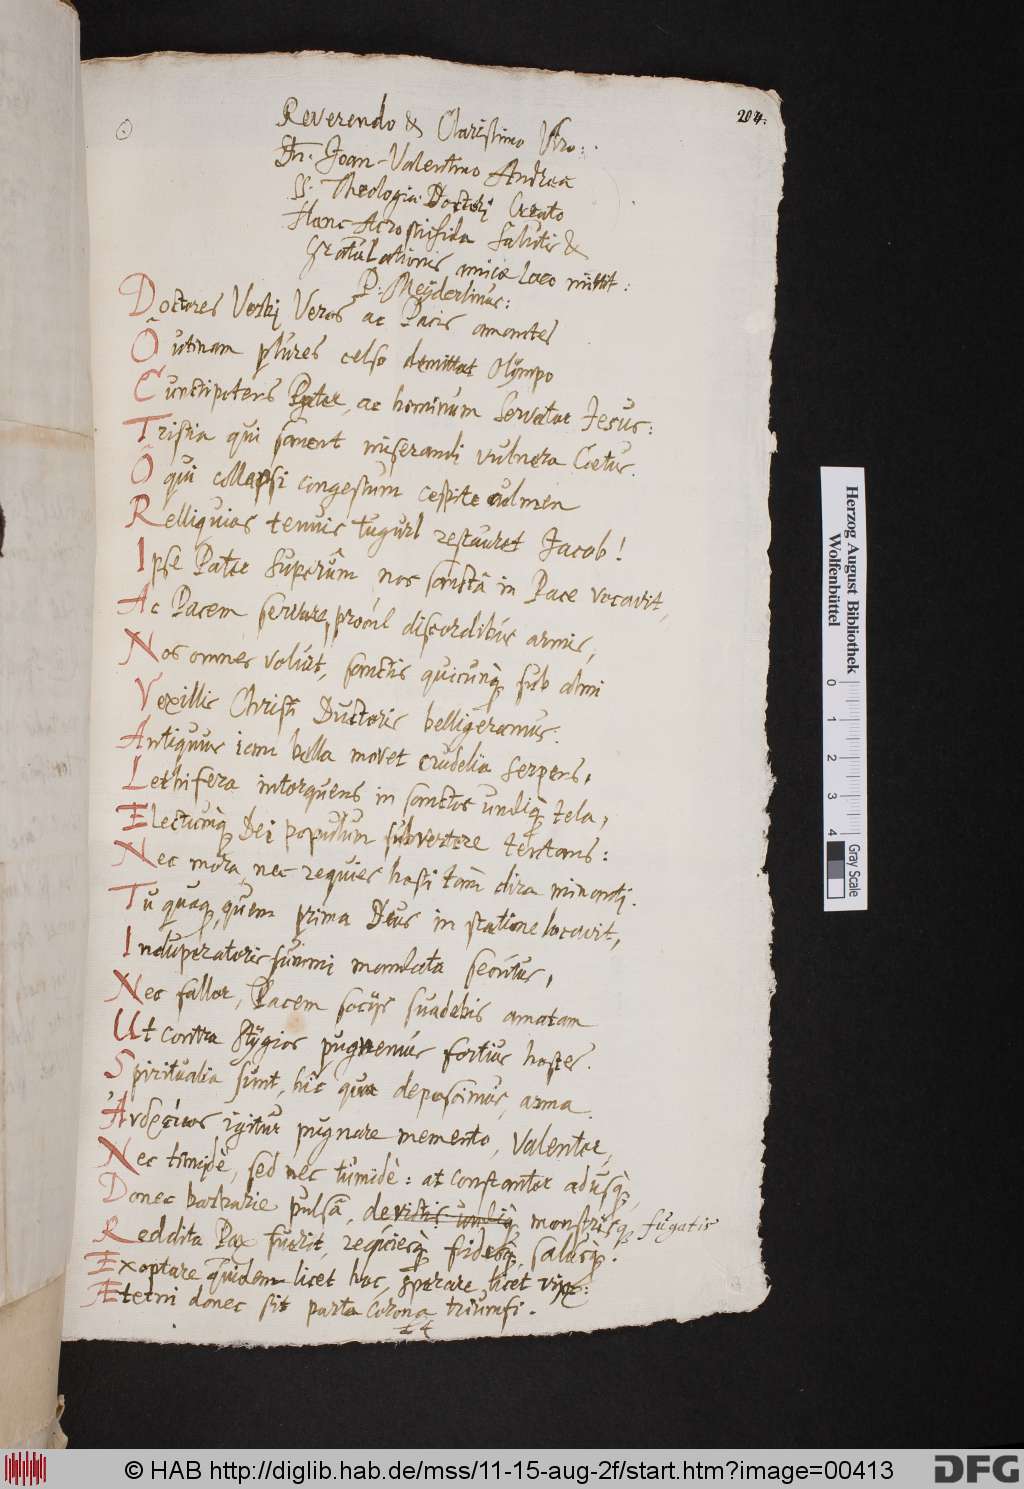 204.
Reverendo & Clarissimo Viro:
Dn. Joan-Valentino Andreæ
SS. Theologiæ Doctori Creato
Hanc Acrostichida Salutis &
Gratulationis amicæ loco mittit:
P. Meyderlinus:
Doctores Verbi Veros ac Pacis amantes
Ô utinam plures celso demittat Olÿmpo
Cunctipotens Pater, ac hominum Servator Jesus:
Tristia qui sanent miserandi vulnera Coetus.
Ô qui collapsi congestum cespite culmen
Relliquias tenuis tugurI restauret Jacob!
Ipse Pater Superûm nos sanctâ in Pace vocavit,
Ac Pacem servare, procul discordibus armis,
Nos omnes voluit, sanctis quicunq; sub almi
Vexillis Christi Ductoris belligeramus.
Antiquus iam bella movet crudelia Serpens,
Lethifera intorquens in sanctos undiq; tela,
Electumq; Dei populum subvertere tentans:
Nec mora, nec requies hosti tam dira minanti.
Tu quoq;, quem prima Deus in statione locavit,
Induperatoris summi mandata secutus,
Nec fallor, Pacem socijs suadebis amatam
Ut contra Stÿgios pugnemus fortius hostes.
Spiritualia sunt, hic quæ deposcimus, arma.
Ἀνδρείως igitur pugnare memento, Valenter,
Nec timidè, sed nec tumidè: at constanter adusq;,
Donec barbarie pulsâ, devictis undiq; monstrisq; fugatis
Reddita Pax fuerit, requiesq; fidesq;, salusq;.
Exoptare quidem licet hoc, sperare licet vix:
Æterni donec sit parta corona triumfi.
Herzog August Bibliothek
Wolfenbüttel
0 1 2 3 4
Gray Scale
© HAB http://diglib.hab.de/mss/11-15-aug-2f/start.htm?image=00413
DFG